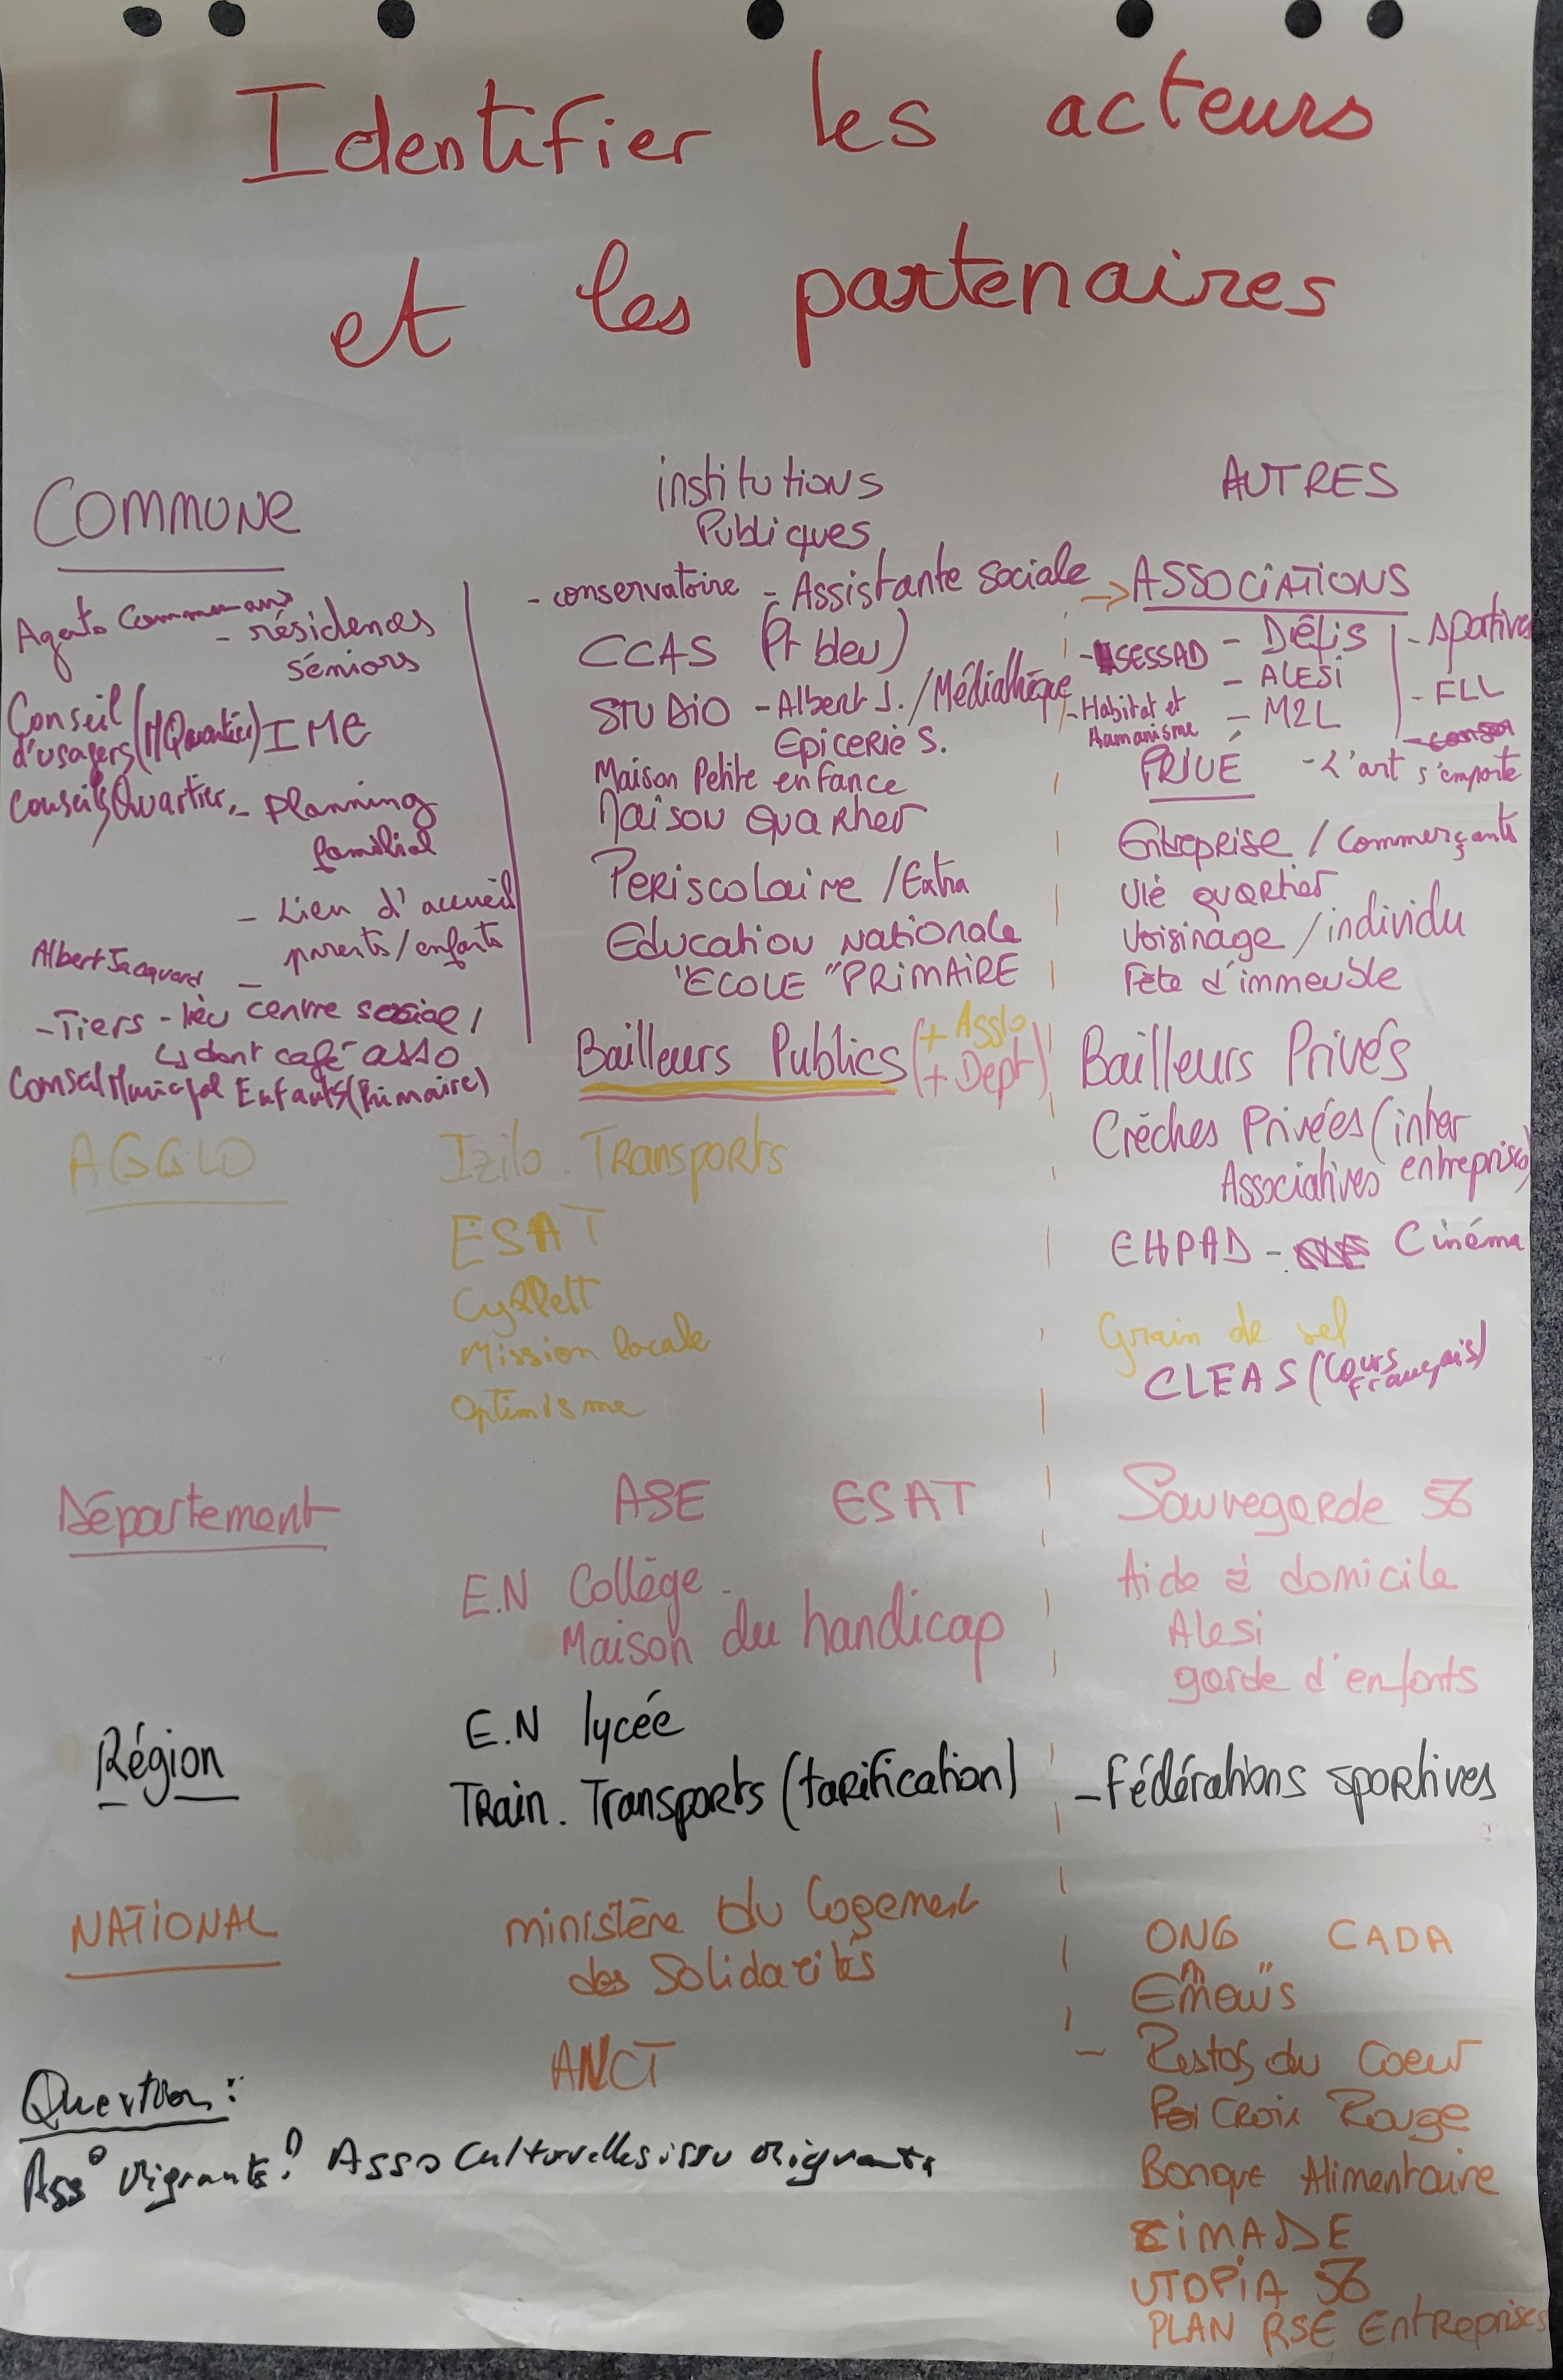 Identifier les acteurs
et les partenaires
COMMUNE
Agents Communaux
- résidences
séniors
Conseil
d'usagers (M Quartier) IME
Conseils Quartier - planning
familial
- Lieu d'accueil
parents/enfants
Albert Jacquard -
- Tiers-lieu centre social /
↳ dont café asso
Conseil Municipal Enfants (Primaire)
institutions
Publiques
- conservatoire - Assistante sociale
CCAS (Pt bleu)
STUDIO - Albert J. / Médiathèque
Epicerie S.
Maison Petite enfance
Maison Quartier
PERISCOLAIRE / Extra
Education Nationale
"ECOLE" PRIMAIRE
Bailleurs Publics (+ Agglo
+ Dept)
AUTRES
→ ASSOCIATIONS
- SESSAD - Défis - sportives
- ALESI - FLL
- Habitat et
Humanisme - M2L
PRIVÉ - L'art s'emporte
Entreprise / Commerçants
Vie quartier
Voisinage / individu
Fête d'immeuble
Bailleurs Privés
Crèches Privées (inter
Associatives entreprises)
EHPAD - Cinéma
Grain de sel
CLEAS (Cours
Français)
AGGLO
Izilo. Transports
ESAT
Mission locale
Optimisme
Département
ASE ESAT
E.N Collège.
Maison du handicap
Sauvegarde 56
Aide à domicile
Alesi
garde d'enfants
Région
E.N lycée
Train. Transports (tarification)
- Fédérations sportives
NATIONAL
ministère du Logement
des Solidarités
ANCT
ONG CADA
Emaüs
- Restos du Coeur
Croix Rouge
Banque Alimentaire
CIMADE
UTOPIA 56
PLAN RSE Entreprises
Question :
Ass° Migrants? Asso Culturelles issu Migrants